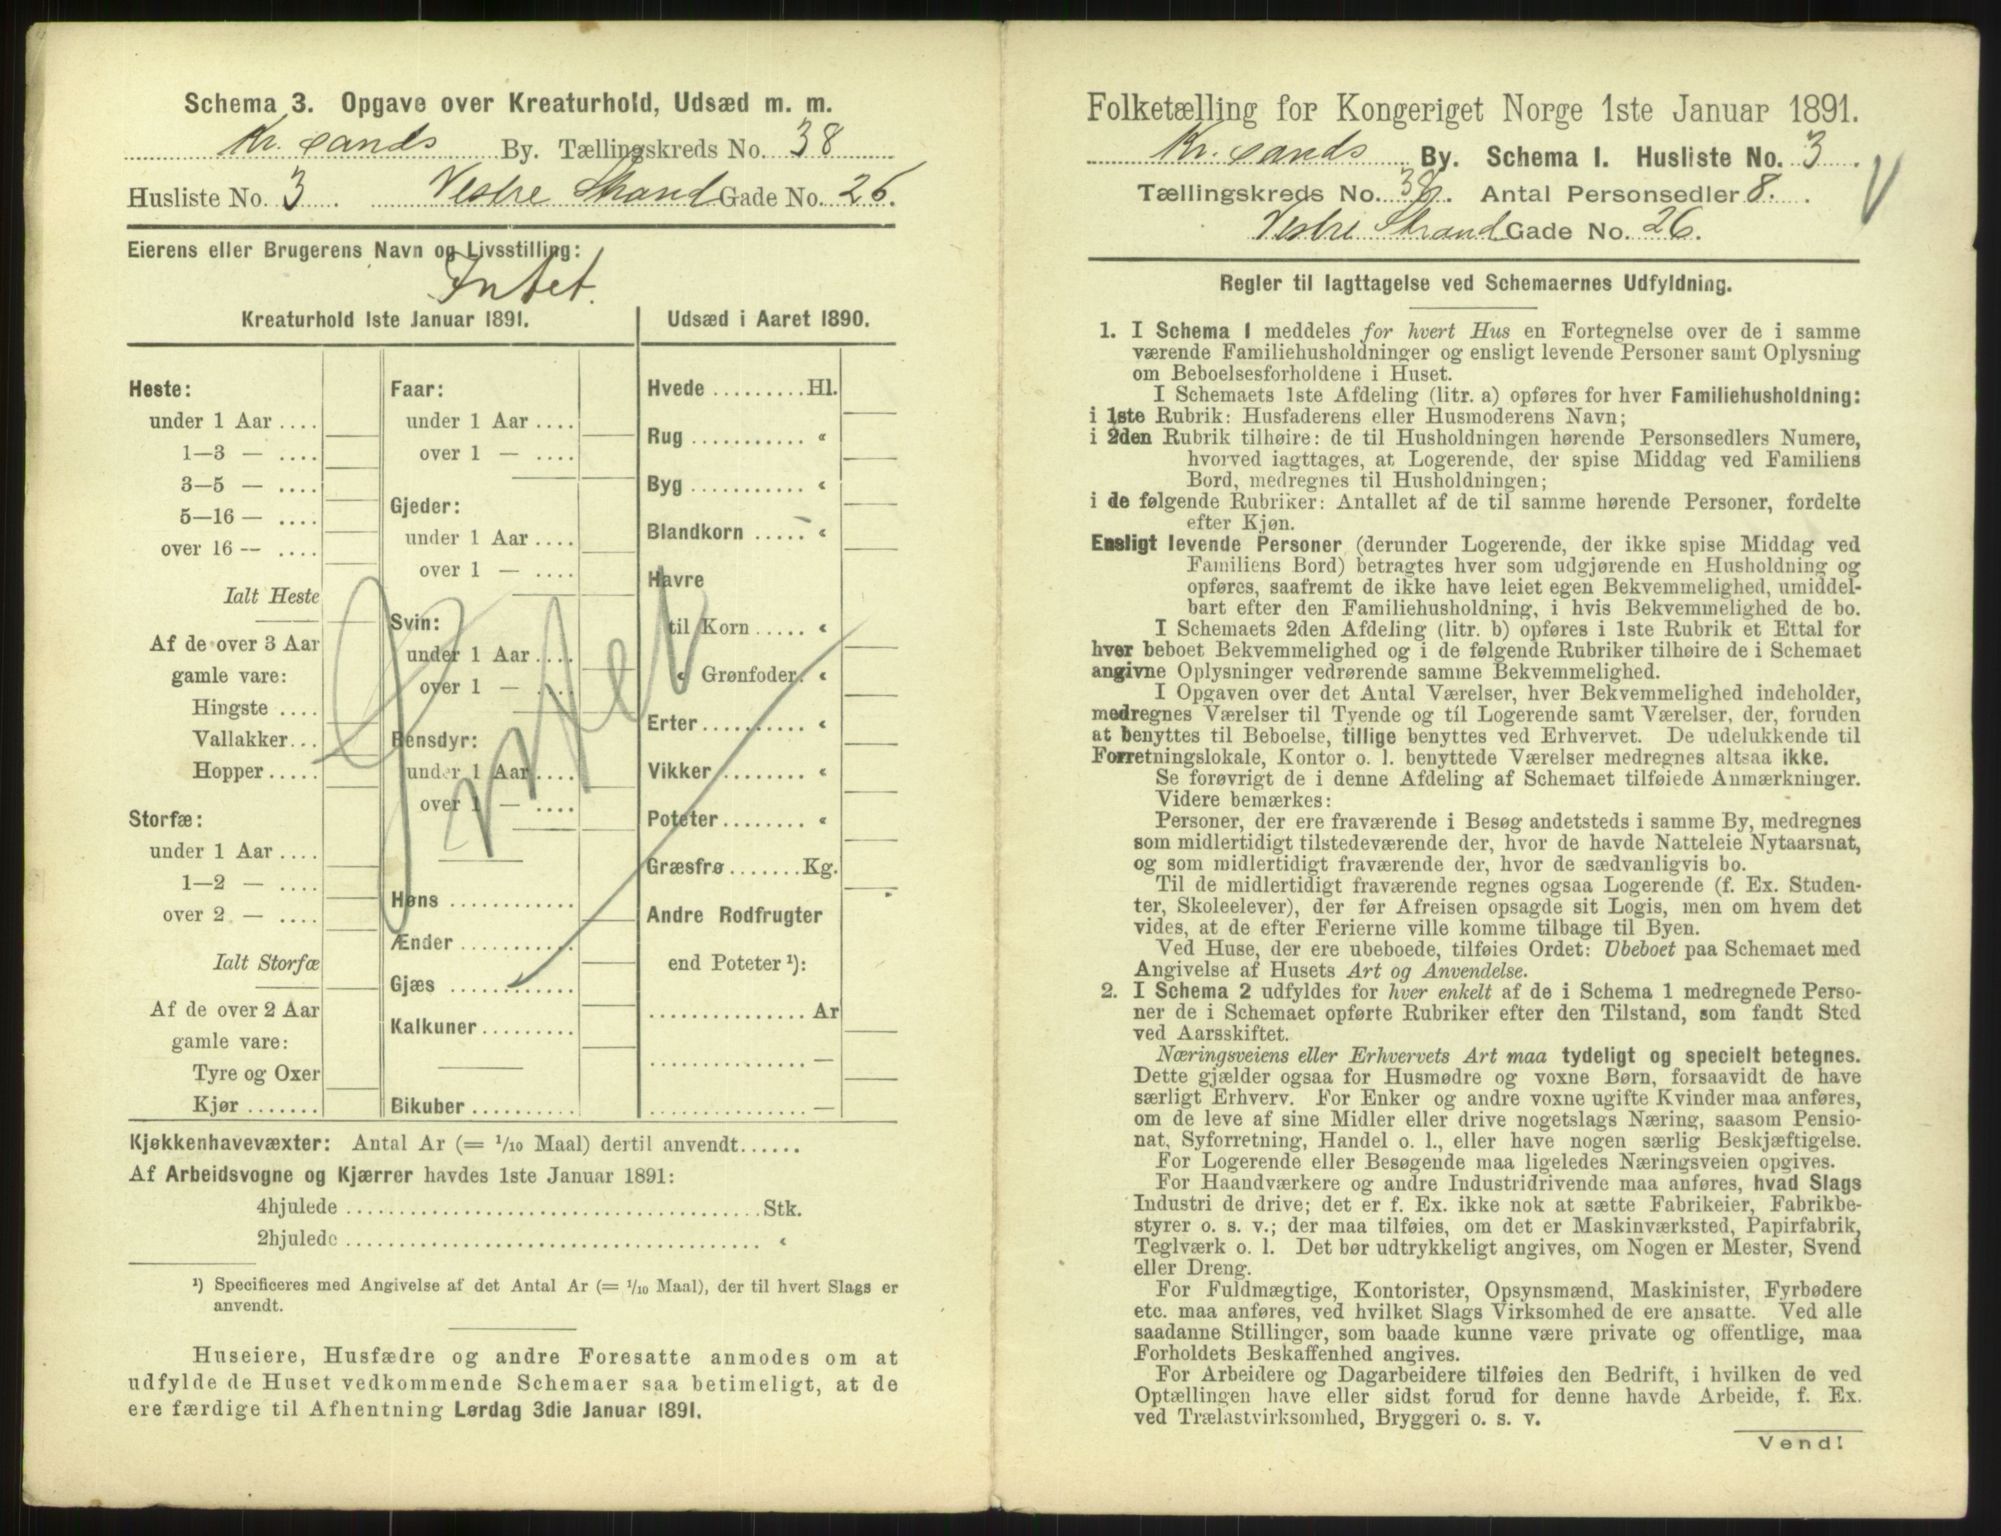 Schema 3. Opgave over Kreaturhold, Udsæd m. m.
Kr.sands By. Tællingskreds No. 38
Husliste No. 3. Vestre Strand Gade No. 26.
Eierens eller Brugerens Navn og Livsstilling:
Intet.
Kreaturhold 1ste Januar 1891.
Heste:
under 1 Aar ....
1—3 — ....
3—5 — ....
5—16 — ....
over 16 — ....
Ialt Heste
Af de over 3 Aar
gamle vare:
Hingste ....
Vallakker...
Hopper.....
Storfæ:
under 1 Aar ....
1—2 — ....
over 2 — ....
Ialt Storfæ
Af de over 2 Aar
gamle vare:
Tyre og Oxer
Kjør .......
Faar:
under 1 Aar ....
over 1 — ....
Gjeder:
under 1 Aar ....
over 1 — ....
Svin:
under 1 Aar ....
over 1 — ....
Rensdyr:
under 1 Aar ....
over 1 — ....
Høns ............
Ænder ...........
Gjæs ............
Kalkuner.........
Bikuber ..........
Intet
Udsæd i Aaret 1890.
Hvede .........Hl.
Rug ........... «
Byg ........... «
Blandkorn ..... «
Havre
til Korn ..... «
« Grønfoder. «
Erter .......... «
Vikker ......... «
Poteter ........ «
Græsfrø .......Kg.
Andre Rodfrugter
end Poteter ¹):
............... Ar
............... —
............... —
Kjøkkenhavevæxter: Antal Ar (= 1/10 Maal) dertil anvendt......
Af Arbeidsvogne og Kjærrer havdes 1ste Januar 1891:
4hjulede ........................................ Stk.
2hjulede ........................................ «
¹) Specificeres med Angivelse af det Antal Ar (= 1/10 Maal), der til hvert Slags er
anvendt.
Huseiere, Husfædre og andre Foresatte anmodes om at
udfylde de Huset vedkommende Schemaer saa betimeligt, at de
ere færdige til Afhentning Lørdag 3die Januar 1891.
Folketælling for Kongeriget Norge 1ste Januar 1891.
Kr.sands By. Schema 1. Husliste No. 3.
Tællingskreds No. 38. Antal Personsedler 8.
Vestre Strand Gade No. 26.
Regler til Iagttagelse ved Schemaernes Udfyldning.
1. I Schema 1 meddeles for hvert Hus en Fortegnelse over de i samme
værende Familiehusholdninger og ensligt levende Personer samt Oplysning
om Beboelsesforholdene i Huset.
I Schemaets 1ste Afdeling (litr. a) opføres for hver Familiehusholdning:
i 1ste Rubrik: Husfaderens eller Husmoderens Navn;
i 2den Rubrik tilhøire: de til Husholdningen hørende Personsedlers Numere,
hvorved iagttages, at Logerende, der spise Middag ved Familiens
Bord, medregnes til Husholdningen;
i de følgende Rubriker: Antallet af de til samme hørende Personer, fordelte
efter Kjøn.
Ensligt levende Personer (derunder Logerende, der ikke spise Middag ved
Familiens Bord) betragtes hver som udgjørende en Husholdning og
opføres, saafremt de ikke have leiet egen Bekvemmelighed, umiddel-
bart efter den Familiehusholdning, i hvis Bekvemmelighed de bo.
I Schemaets 2den Afdeling (litr. b) opføres i 1ste Rubrik et Ettal for
hver beboet Bekvemmelighed og i de følgende Rubriker tilhøire de i Schemaet
angivne Oplysninger vedrørende samme Bekvemmelighed.
I Opgaven over det Antal Værelser, hver Bekvemmelighed indeholder,
medregnes Værelser til Tyende og til Logerende samt Værelser, der, foruden
at benyttes til Beboelse, tillige benyttes ved Erhvervet. De udelukkende til
Forretningslokale, Kontor o. l. benyttede Værelser medregnes altsaa ikke.
Se forøvrigt de i denne Afdeling af Schemaet tilføiede Anmærkninger.
Videre bemærkes:
Personer, der ere fraværende i Besøg andetsteds i samme By, medregnes
som midlertidigt tilstedeværende der, hvor de havde Natteleie Nytaarsnat,
og som midlertidigt fraværende der, hvor de sædvanligvis bo.
Til de midlertidigt fraværende regnes ogsaa Logerende (f. Ex. Studen-
ter, Skoleelever), der før Afreisen opsagde sit Logis, men om hvem det
vides, at de efter Ferierne ville komme tilbage til Byen.
Ved Huse, der ere ubeboede, tilføies Ordet: Ubeboet paa Schemaet med
Angivelse af Husets Art og Anvendelse.
2. I Schema 2 udfyldes for hver enkelt af de i Schema 1 medregnede Perso-
ner de i Schemaet opførte Rubriker efter den Tilstand, som fandt Sted
ved Aarsskiftet.
Næringsveiens eller Erhvervets Art maa tydeligt og specielt betegnes.
Dette gjælder ogsaa for Husmødre og voxne Børn, forsaavidt de have
særligt Erhverv. For Enker og andre voxne ugifte Kvinder maa anføres,
om de leve af sine Midler eller drive nogetslags Næring, saasom Pensio-
nat, Syforretning, Handel o. l., eller have nogen særlig Beskjæftigelse.
For Logerende eller Besøgende maa ligeledes Næringsveien opgives.
For Haandværkere og andre Industridrivende maa anføres, hvad Slags
Industri de drive; det er f. Ex. ikke nok at sætte Fabrikeier, Fabrikbe-
styrer o. s. v.; der maa tilføies, om det er Maskinværksted, Papirfabrik,
Teglværk o. l. Det bør udtrykkeligt angives, om Nogen er Mester, Svend
eller Dreng.
For Fuldmægtige, Kontorister, Opsynsmænd, Maskinister, Fyrbødere
etc. maa anføres, ved hvilket Slags Virksomhed de ere ansatte. Ved alle
saadanne Stillinger, som baade kunne være private og offentlige, maa
Forholdets Beskaffenhed angives.
For Arbeidere og Dagarbeidere tilføies den Bedrift, i hvilken de ved
Optællingen have eller sidst forud for denne havde Arbeide, f. Ex.
ved Trælastvirksomhed, Bryggeri o. s. v.
Vend!